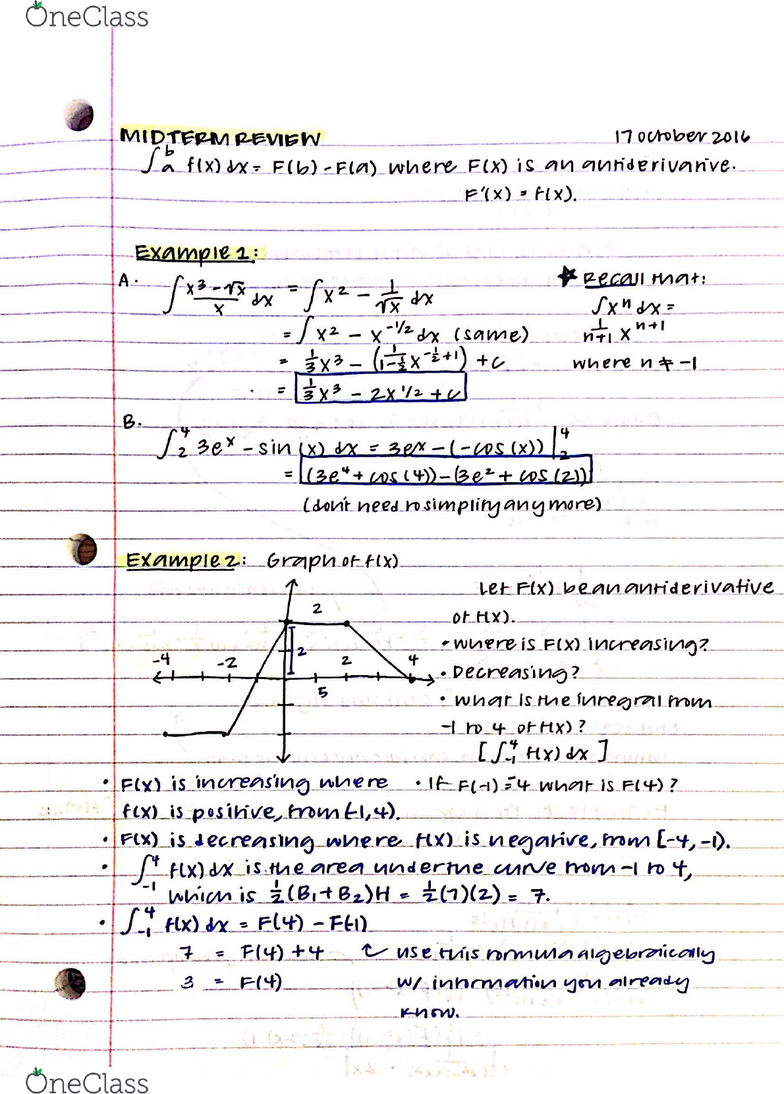 OneClass
MIDTERM REVIEW 17 october 2016
∫ₐᵇ f(x) dx = F(b) - F(a) where F(x) is an antiderivative.
F'(x) = f(x).
Example 1:
A. ∫ (x³ - √x)/x dx = ∫ x² - 1/√x dx
= ∫ x² - x^(-1/2) dx (same)
= 1/3 x³ - (1/(1-1/2) x^(-1/2+1)) + C
= 1/3 x³ - 2x^(1/2) + C
★ Recall that:
∫ xⁿ dx =
1/(n+1) x^(n+1)
where n ≠ -1
B.
∫₂⁴ 3eˣ - sin(x) dx = 3eˣ - (-cos(x)) |₂⁴
= (3e⁴ + cos(4)) - (3e² + cos(2))
(don't need to simplify any more)
Example 2: Graph of f(x)
2
2
-4 -2 2 4
5
Let F(x) be an antiderivative
of f(x).
• where is F(x) increasing?
• Decreasing?
• what is the integral from
-1 to 4 of f(x)?
[∫₋₁⁴ f(x) dx]
• If F(-1) = -4 what is F(4)?
• F(x) is increasing where
f(x) is positive, from (-1, 4).
• F(x) is decreasing where f(x) is negative, from [-4, -1).
• ∫₋₁⁴ f(x) dx is the area under the curve from -1 to 4,
which is 1/2 (B₁ + B₂)H = 1/2 (7)(2) = 7.
• ∫₋₁⁴ f(x) dx = F(4) - F(-1)
7 = F(4) + 4 ↶ use this formula algebraically
3 = F(4) w/ information you already
know.
OneClass